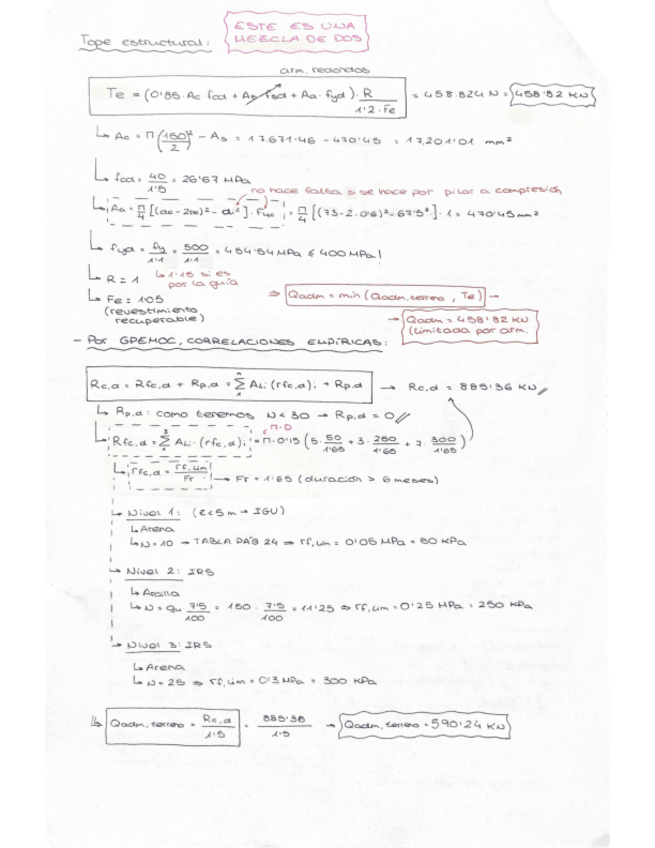 ESTE ES UNA
MEZCLA DE DOS
Tope estructural:
arm. redondos
Te = (0'85·Ac·fcd + As·fsd + Aa·fyd)·R/(1'2·Fe) = 458.824 N = 458'82 KN
↳ Ac = π(150/2)² − As = 17.671'46 − 470'45 = 17.201'01 mm²
↳ fcd = 40/1'5 = 26'67 MPa
no hace falta si se hace por pilar a compresión
↳ Aa = π/4 [(de − 2re)² − di²]·Fuc = π/4 [(73 − 2·0'6)² − 67'5²]·1 = 470'45 mm²
↳ fyd = fy/1'1 = 500/1'1 = 454'54 MPa ≤ 400 MPa!
↳ R = 1 ↳ 1'15 si es por la guía
↳ Fe = 1'05
(revestimiento
recuperable)
⇒ Qadm = min (Qadm,terreno, Te) →
→ Qadm = 458'82 KN
(Limitada por arm.
- Por GPEMOC, CORRELACIONES EMPÍRICAS:
Rc,d = Rfc,d + Rp,d = Σ ALi (rfc,d)i + Rp,d → Rc,d = 885'36 KN
↳ Rp,d: como tenemos N < 30 → Rp,d = 0
π·D
↳ Rfc,d = Σ ALi·(rfc,d)i = π·0'15 (5·50/1'65 + 3·250/1'65 + 7·300/1'65)
↳ rfc,d = rf,lim/Fr → Fr = 1'65 (duración > 6 meses)
↳ Nivel 1: (z<5m → IGU)
↳ Arena
↳ N = 10 → TABLA PÁG 24 ⇒ rf,lim = 0'05 MPa = 50 KPa
↳ Nivel 2: IRS
↳ Arcilla
↳ N = qu·7'5/100 = 150·7'5/100 = 11'25 ⇒ rf,lim = 0'25 MPa = 250 KPa
↳ Nivel 3: IRS
↳ Arena
↳ N = 25 ⇒ rf,lim = 0'3 MPa = 300 KPa
↳ Qadm,terreno = Rc,d/1'5 = 885'36/1'5 → Qadm,terreno = 590'24 KN